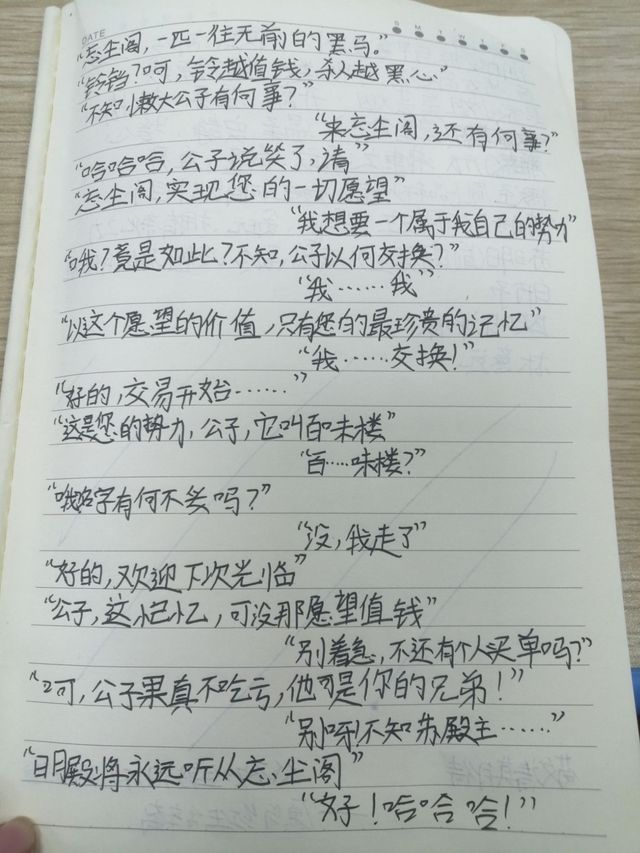 DATE
S M T W T F S
“忘尘阁，一匹一往无前的黑马。”
“铃铛？呵，铃越值钱，杀人越黑心”
“不知小敖大公子有何事？”
“来忘尘阁，还有何事？”
“哈哈哈，公子说笑了，请”
“忘尘阁，实现您的一切愿望”
“我想要一个属于我自己的势力”
“哦？竟是如此？不知，公子以何交换？”
“我……我”
“以这个愿望的价值，只有您的最珍贵的记忆”
“我……交换！”
“好的，交易开始……”
“这是您的势力，公子，它叫百味楼”
“百……味楼？”
“哦名字有何不妥吗？”
“没，我走了”
“好的，欢迎下次光临”
“公子，这记忆，可没那愿望值钱”
“别着急，不还有个人买单吗？”
“呵，公子果真不吃亏，他可是你的兄弟！”
“别呀！不知苏殿主……”
“明殿将永远听从忘尘阁”
“好！哈哈哈！”